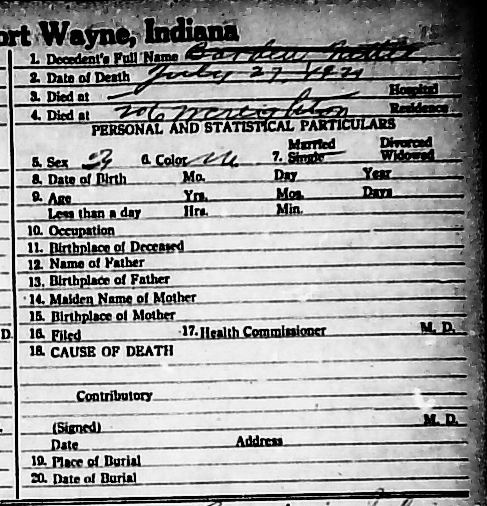 ort Wayne, Indiana
1. Decedent's Full Name
2. Date of Death July 27 1921
3. Died at Hospital
4. Died at 706 W Creighton Residence
PERSONAL AND STATISTICAL PARTICULARS
5. Sex 6. Color W 7. Married Single Divorced Widowed
8. Date of Birth Mo. Day Year
9. Age Yrs. Mos. Days
Less than a day Hrs. Min.
10. Occupation
11. Birthplace of Deceased
12. Name of Father
13. Birthplace of Father
14. Maiden Name of Mother
15. Birthplace of Mother
D. 16. Filed 17. Health Commissioner M. D.
18. CAUSE OF DEATH
Contributory
(Signed) M. D.
Date Address
19. Place of Burial
20. Date of Burial